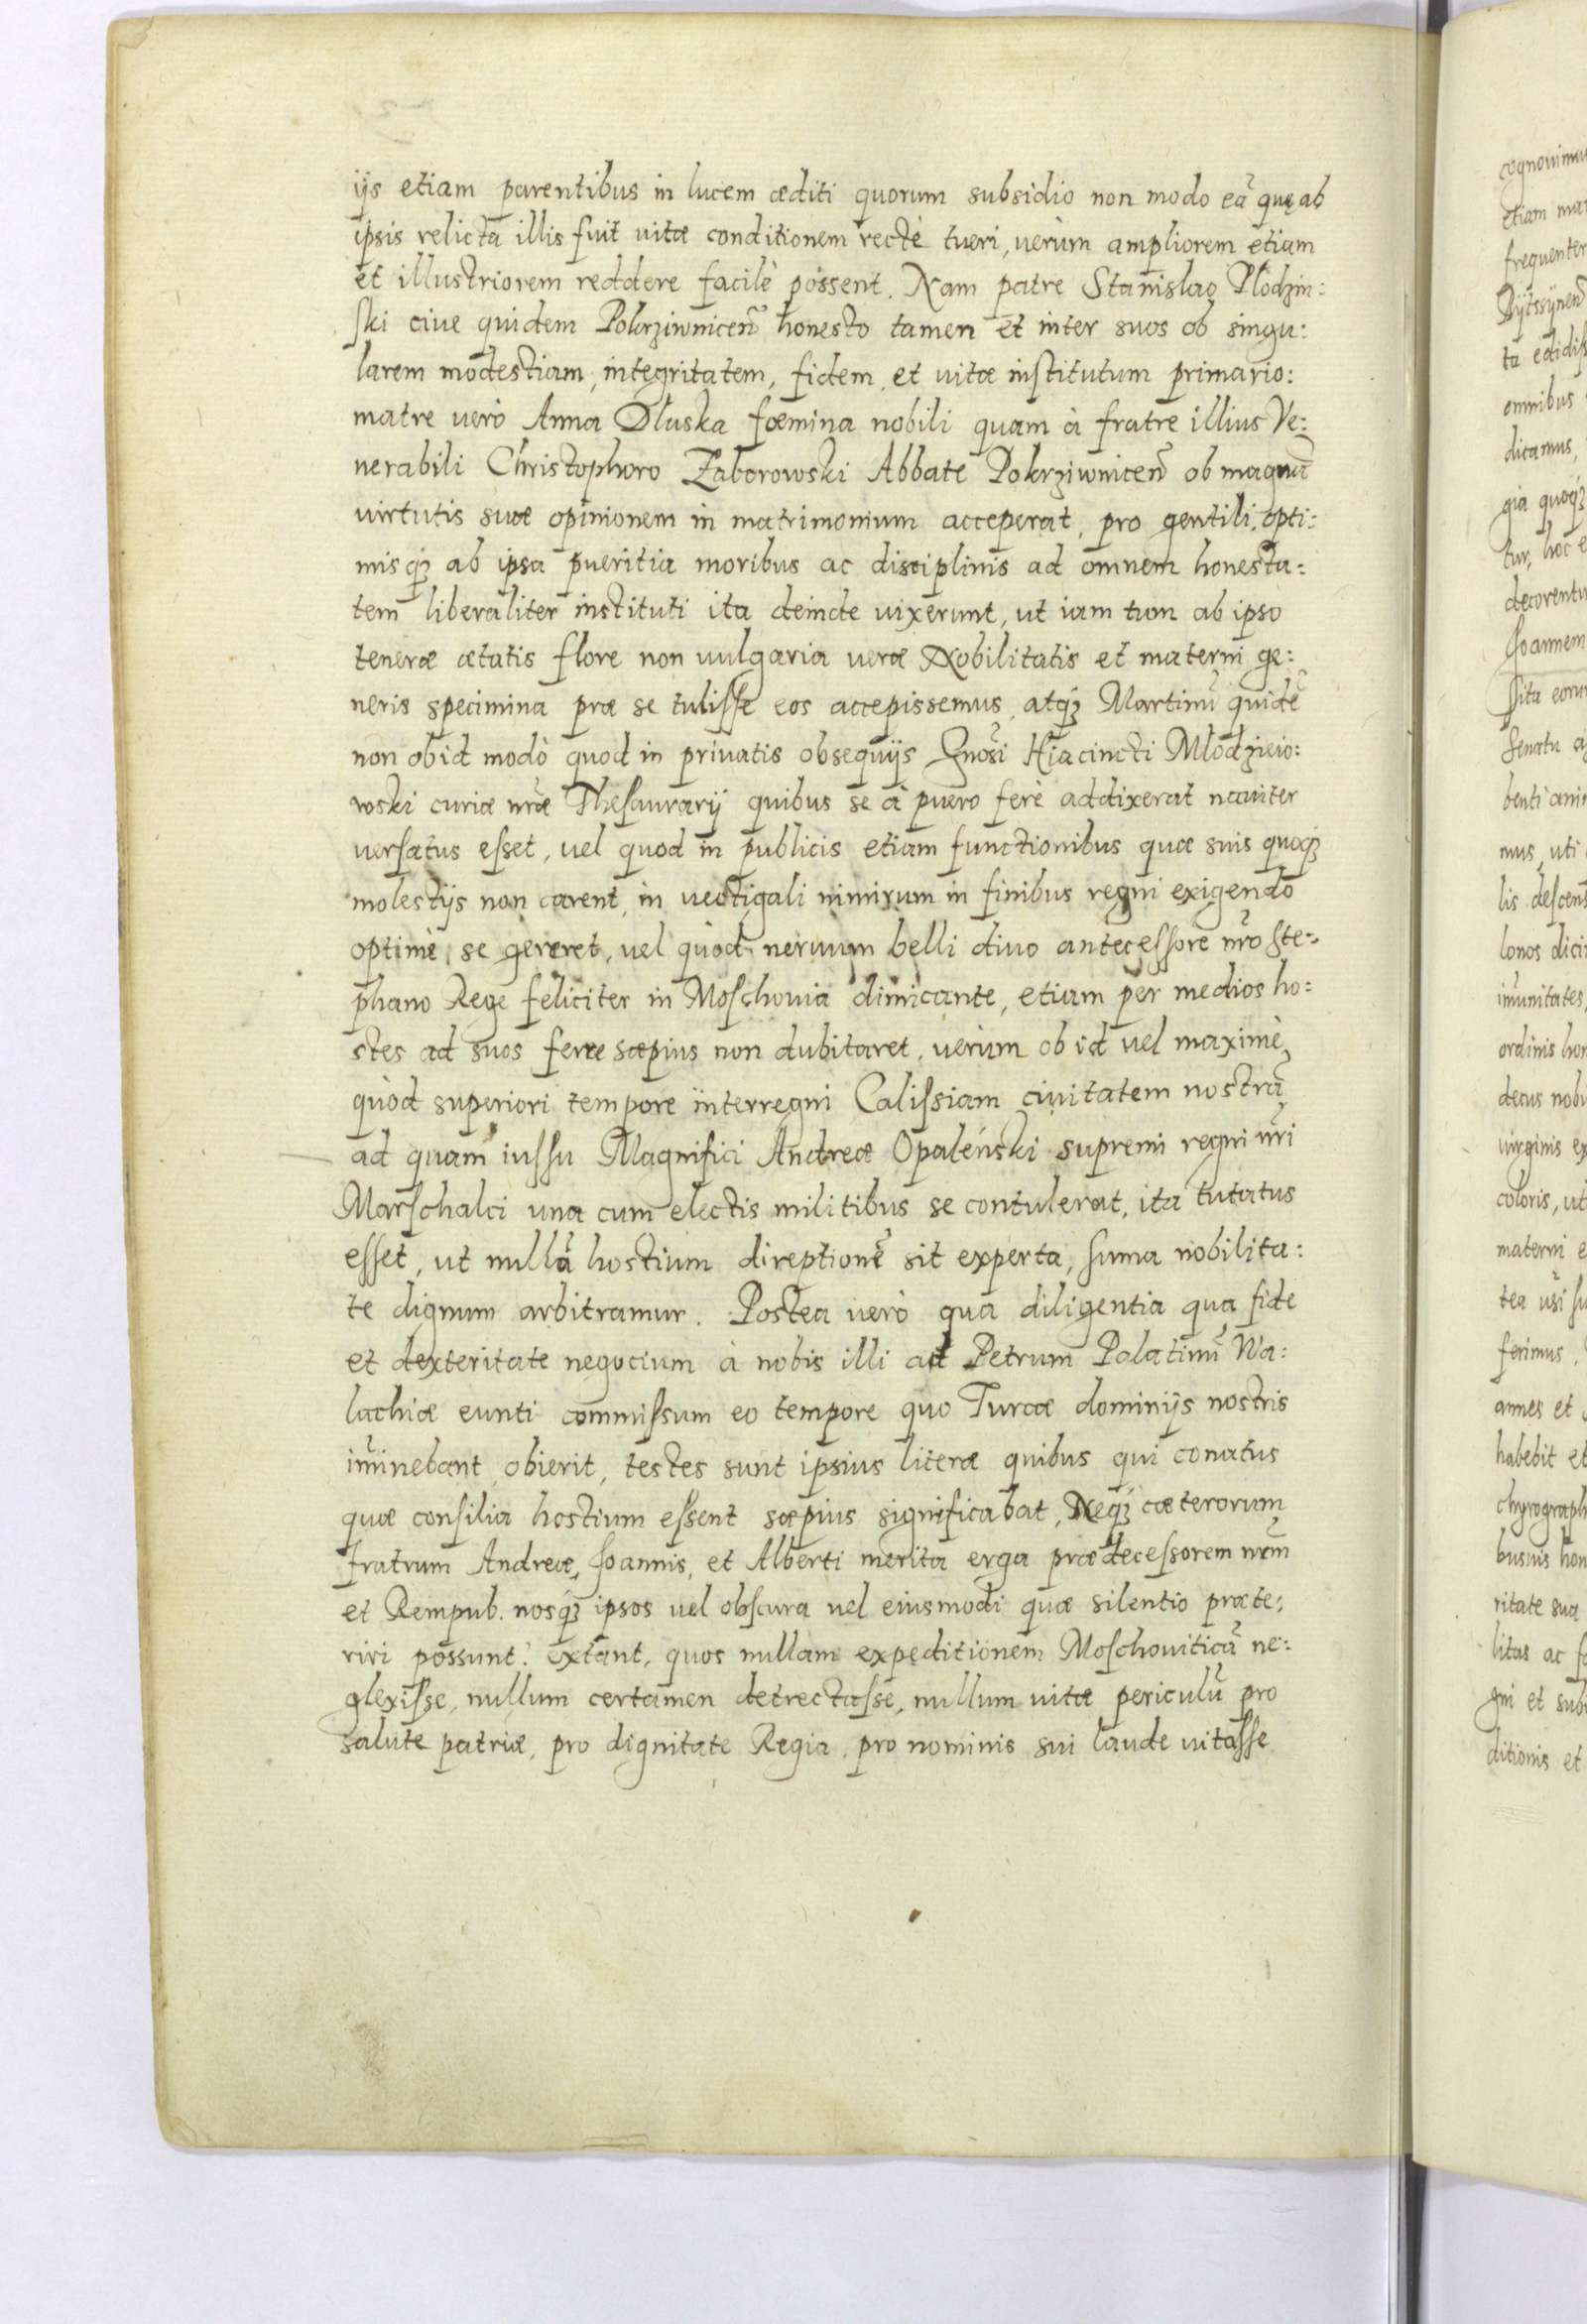 ijs etiam parentibus in lucem æditi quorum subsidio non modo eã quę ab
ipsis relicta illis fuit uitæ conditionem rectè tueri, uerùm ampliorem etiam
et illustriorem reddere facilè possent. Nam patre Stanislao Plodzin:
ſki ciue quidem Pokrziwnicen̄ honesto tamen et inter suos ob singu:
larem modestiam, integritatem, fidem, et uitæ inſtitutum primario:
matre uerò Anna Dluska fœmina nobili quam à fratre illius Ve:
nerabili Christophoro Zaborowski Abbate Pokrziwnicen̄ ob magnã
uirtutis suæ opinionem in matrimonium acceperat, pro gentili, opti:
misq́ꝫ ab ipsa pueritia moribus ac disciplinis ad omnem honesta:
tem liberaliter instituti ita deinde uixerunt, ut iam tum ab ipso
teneræ ætatis flore non uulgaria ueræ Nobilitatis et materni ge:
neris specimina præ se tuliſſe eos accepissemus, atq́ꝫ Martinũ quidẽ
non ob id modò quod in priuatis obsequijs Gnoſi Hiacincti Mlodzieio:
wski curiæ nr̃æ Theſaurarij quibus se à puero ferè addixerat nauiter
uerſatus eſset, uel quod in publicis etiam functionibus quæ suis quoq́ꝫ
molestijs non carent, in uectigali nimirum in finibus regni exigendo
optimè se gereret, uel quòd neruum belli diuo anteceſsore nr̃o Ste:
phano Rege feliciter in Moſchouia dimicante, etiam per medios ho:
stes ad suos ferre sæpius non dubitaret, uerùm ob id uel maximè,
quòd superiori tempore interregni Caliſsiam ciuitatem nostrã
ad quam iuſsu Magnifici Andreæ Opaleński supremi regni nr̃i
Marſchalci una cum electis militibus se contulerat, ita tutatus
eſset, ut nullã hostium direptionẽ sit experta, ſuma nobilita:
te dignum arbitramur. Postea uerò qua diligentia qua fide
et dexteritate negocium à nobis illi ad Petrum Palatinũ Wa:
lachiæ eunti commiſsum eo tempore quo Turcæ dominijs nostris
im̃inebant obierit, testes sunt ipsius literæ quibus qui conatus
quæ conſilia hostium eſsent sæpius significabat, Neq́ꝫ cæterorum
fratrum Andreæ, Joannis, et Alberti merita erga prædeceſsorem nr̃m
et Rempub. nosq́ꝫ ipsos uel obſcura uel eiusmodi quæ silentio præte:
riri possunt extant, quos nullam expeditionem Moſchouiticã ne:
glexiſse, nullum certamen detrectaſse, nullum uitæ periculũ pro
salute patriæ, pro dignitate Regia, pro nominis sui laude uitaſſe